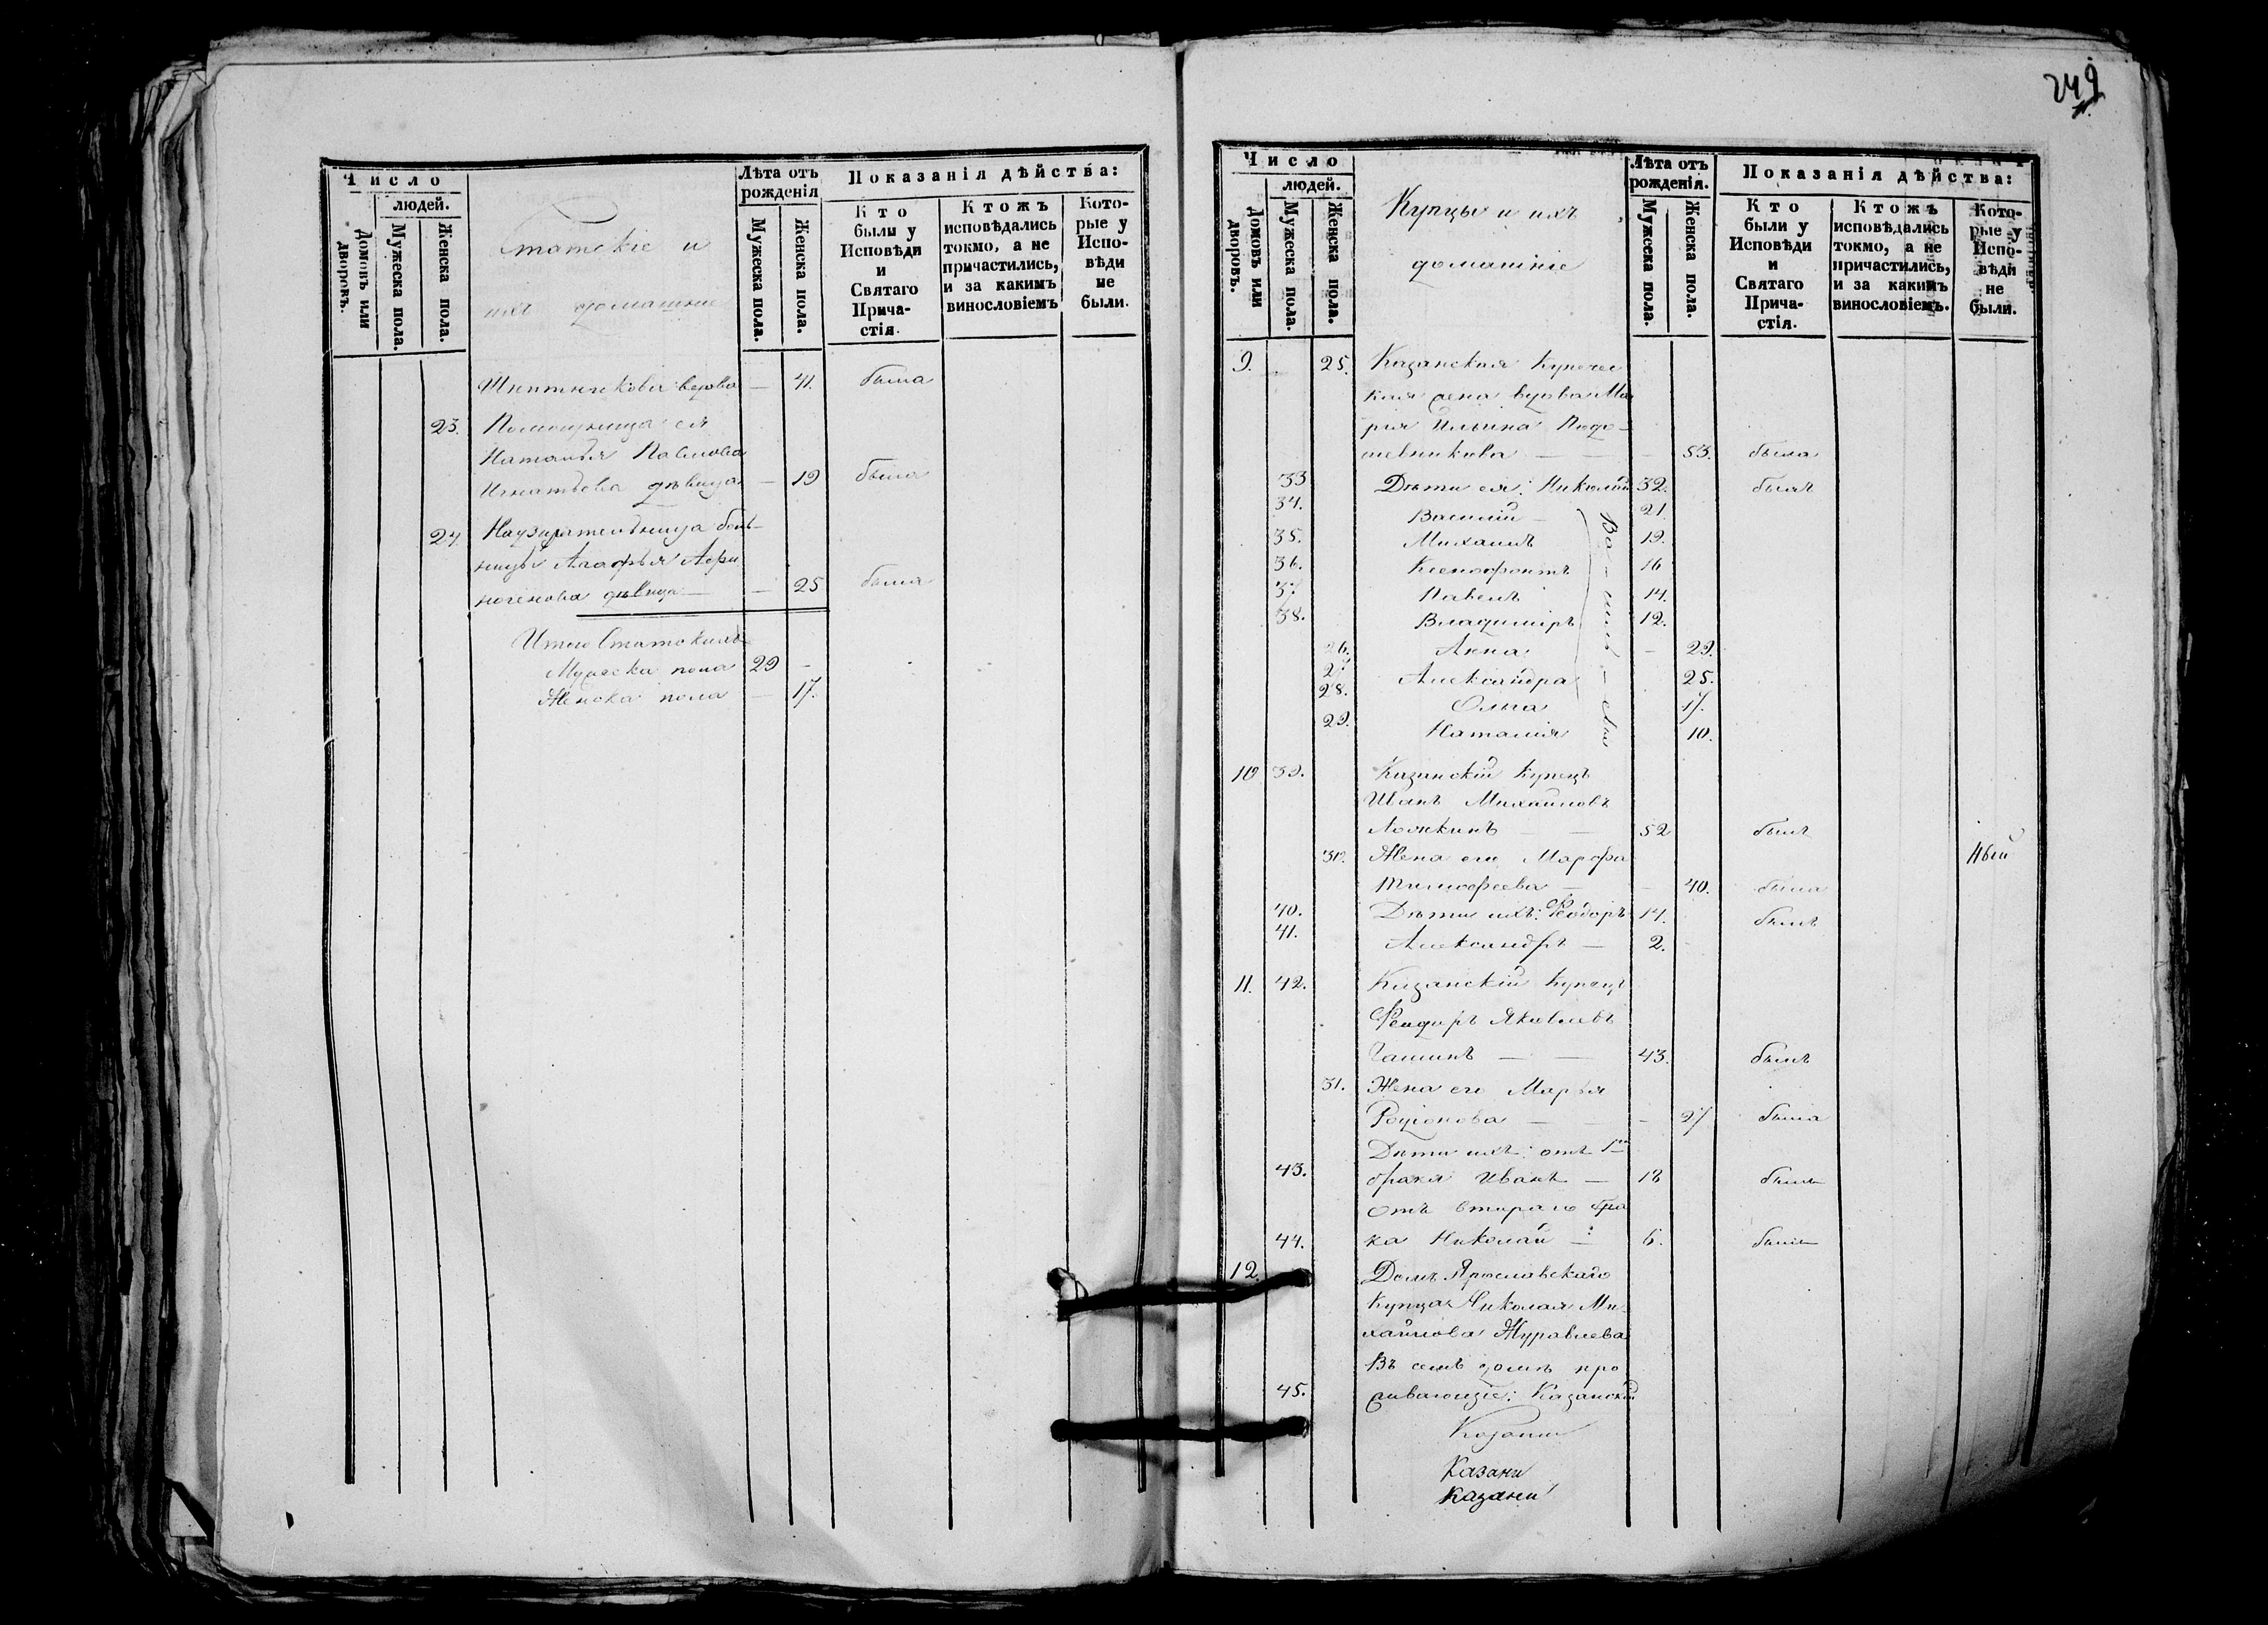 Число
людей.
Домовъ или дворовъ.
Мужеска пола.
Женска пола.
Статскіе и
ихъ домашніе
Лѣта отъ рожденія
Мужеска пола.
Женска пола.
Показанія дѣйства:
Кто были у Исповѣди и Святаго Прича-стія.
Ктожъ исповѣдались токмо, а не причастились, и за какимъ винословіемъ
Кото-рые у Испо-вѣди не были.
вдова — 41. была
23. Помощница ея
Наталья Павлова
Игнатьева дѣвица — 19 была
24. Надзирательница боль-
ницы Агафья
дѣвица — 25 была
Итого Статскихъ
Мужеска пола 29 —
Женска пола — 17.
249
Число
людей.
Домовъ или дворовъ.
Мужеска пола.
Женска пола.
Купцы и ихъ
домашніе
Лѣта отъ рожденія.
Мужеска пола.
Женска пола.
Показанія дѣйства:
Кто были у Исповѣди и Святаго Прича-стія.
Ктожъ исповѣдались токмо, а не причастились, и за какимъ винословіемъ.
Кото-рые у Испо-вѣди не были.
9. 25. Казанская Купечес
кая жена вдова Ма
рія Ильина
— — 53. была
33 Дѣти ея: Николай 32. былъ
34. Василій — 21.
35. Михаилъ 19.
36. Ксенофонтъ 16
37. Павелъ 14.
38. Владиміръ 12.
26. Анна — 29.
27 Александра — 25.
28. Ольга 17.
29. Наталія 10.
Ва-силь-евы
10 39. Казанскій Купецъ
Иванъ Михайловъ
Ложкинъ — — 52 былъ
30. Жена его Марфа
Тимофеева — — 40. была
40. Дѣти ихъ: Феодоръ 14. былъ
41. Александръ — 2.
11. 42. Казанскій Купецъ
Феодоръ Яковлевъ
— — 43. былъ
31. Жена его Марья
Родіонова — — 27 была
Дѣти ихъ: отъ 1го
43. брака Иванъ — 18 былъ
отъ втораго бра
44. ка Николай — 6. былъ
12. Домъ Ярославскаго
Купца Николая Ми
хайлова Журавлева
Въ семъ домѣ про
45. живающіе: Казанскій
Казани
Казани
Казани